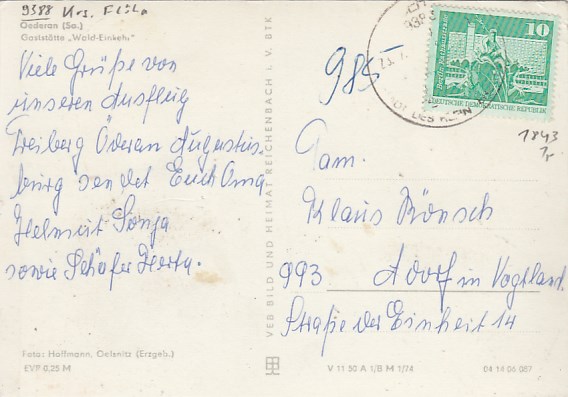 9388 Krs. Flöha
Oederan (Sa.)
Gaststätte „Wald-Einkehr"
Viele Grüße von
unseren Ausflug
Freiberg Öderan Augustus-
burg sendet Euch Oma
Helmut Sonja
sowie Schäfer Herta.
Foto: Hoffmann, Oelsnitz (Erzgeb.)
EVP 0,25 M
VEB BILD UND HEIMAT REICHENBACH I. V. BTK
985
10
DEUTSCHE DEMOKRATISCHE REPUBLIK
1843
Fam.
Klaus Rönsch
993 Adorf in Vogtland
Straße der Einheit 14
V 11 50 A 1/B M 1/74
04 14 06 087